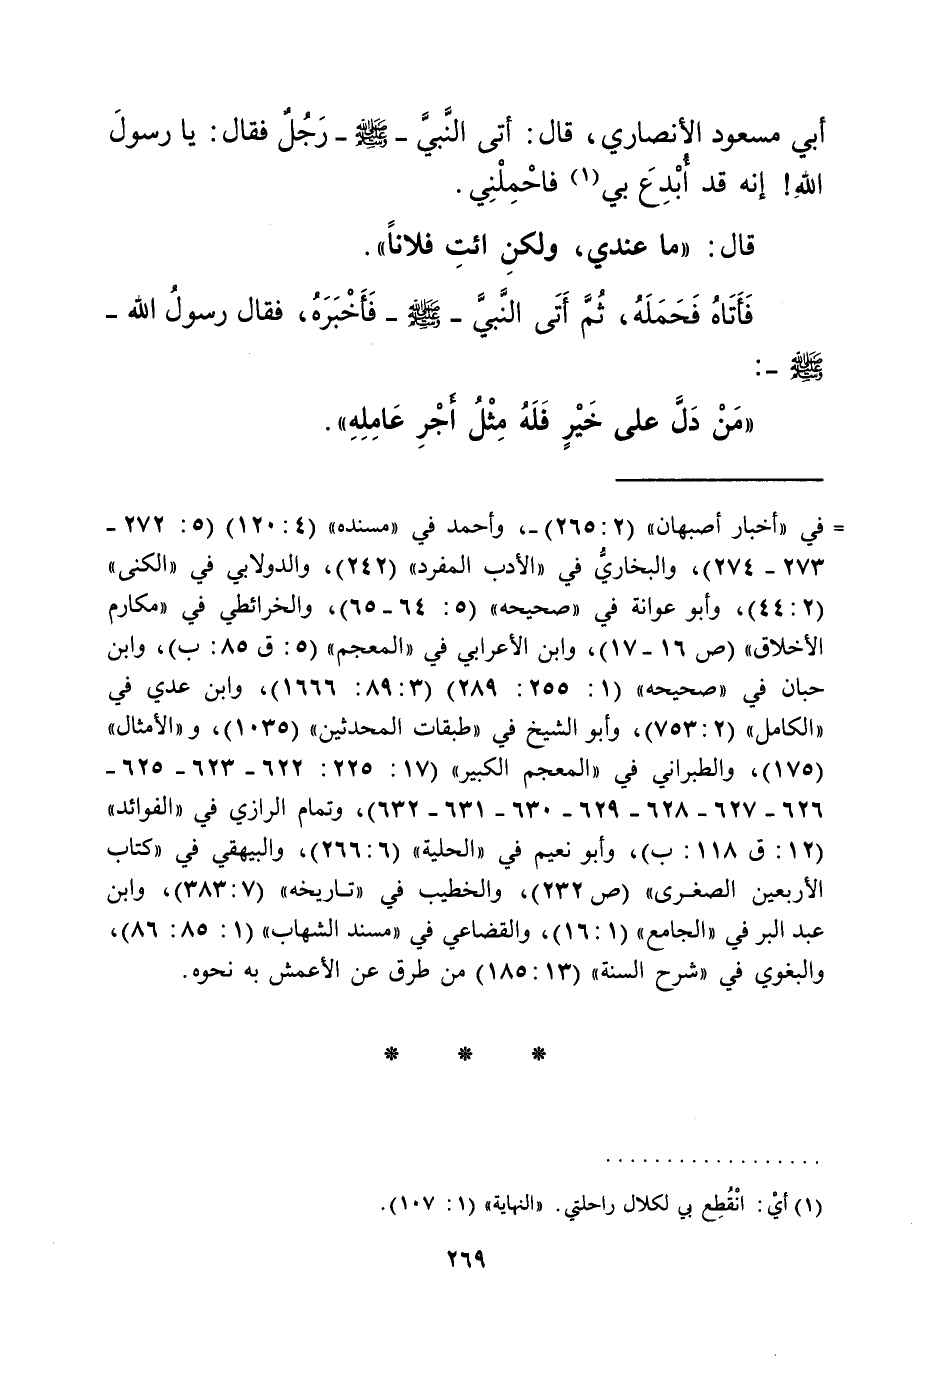 أبي مسعود الأنصاري، قال: أتى النَّبيَّ ـ ﷺ ـ رَجُلٌ فقال: يا رسولَ
اللهِ! إنه قد أُبْدِعَ بي(١) فاحْمِلْنِي.
قال: «ما عندي، ولكنِ ائتِ فلاناً».
فَأَتَاهُ فَحَمَلَهُ، ثُمَّ أَتَى النَّبيَّ ـ ﷺ ـ فَأَخْبَرَهُ، فقال رسولُ الله ـ
ﷺ ـ:
«مَنْ دَلَّ على خَيْرٍ فَلَهُ مِثْلُ أَجْرِ عَامِلِهِ».
= في «أخبار أصبهان» (٢:٢٦٥) ـ، وأحمد في «مسنده» (٤:١٢٠) (٥: ٢٧٢ ـ
٢٧٣ ـ ٢٧٤)، والبخاريُّ في «الأدب المفرد» (٢٤٢)، والدولابي في «الكنى»
(٢:٤٤)، وأبو عوانة في «صحيحه» (٥: ٦٤ ـ ٦٥)، والخرائطي في «مكارم
الأخلاق» (ص ١٦ ـ ١٧)، وابن الأعرابي في «المعجم» (٥: ق ٨٥: ب)، وابن
حبان في «صحيحه» (١: ٢٥٥: ٢٨٩) (٣:٨٩: ١٦٦٦)، وابن عدي في
«الكامل» (٢:٧٥٣)، وأبو الشيخ في «طبقات المحدثين» (١٠٣٥)، و «الأمثال»
(١٧٥)، والطبراني في «المعجم الكبير» (١٧: ٢٢٥: ٦٢٢ ـ ٦٢٣ ـ ٦٢٥ ـ
٦٢٦ ـ ٦٢٧ ـ ٦٢٨ ـ ٦٢٩ ـ ٦٣٠ ـ ٦٣١ ـ ٦٣٢)، وتمام الرازي في «الفوائد»
(١٢: ق ١١٨: ب)، وأبو نعيم في «الحلية» (٦:٢٦٦)، والبيهقي في «كتاب
الأربعين الصغرى» (ص ٢٣٢)، والخطيب في «تاريخه» (٧:٣٨٣)، وابن
عبد البر في «الجامع» (١:١٦)، والقضاعي في «مسند الشهاب» (١: ٨٥: ٨٦)،
والبغوي في «شرح السنة» (١٣:١٨٥) من طرق عن الأعمش به نحوه.
* * *
(١) أيْ: انْقُطِع بي لكلال راحلتي. «النهاية» (١: ١٠٧).
٢٦٩